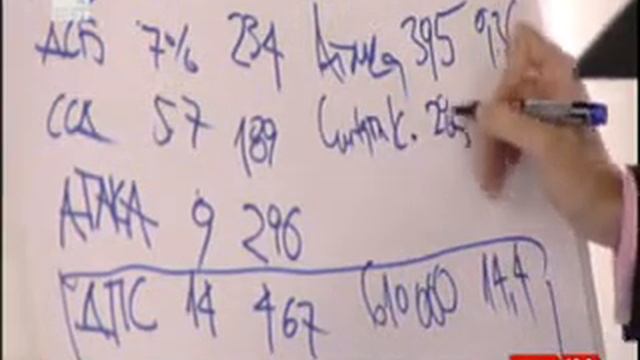 ДСБ 7% 234 Атака 395 9,3
ССД 57 189
АТАКА 9 296
ДПС 14 467 610000 14,4